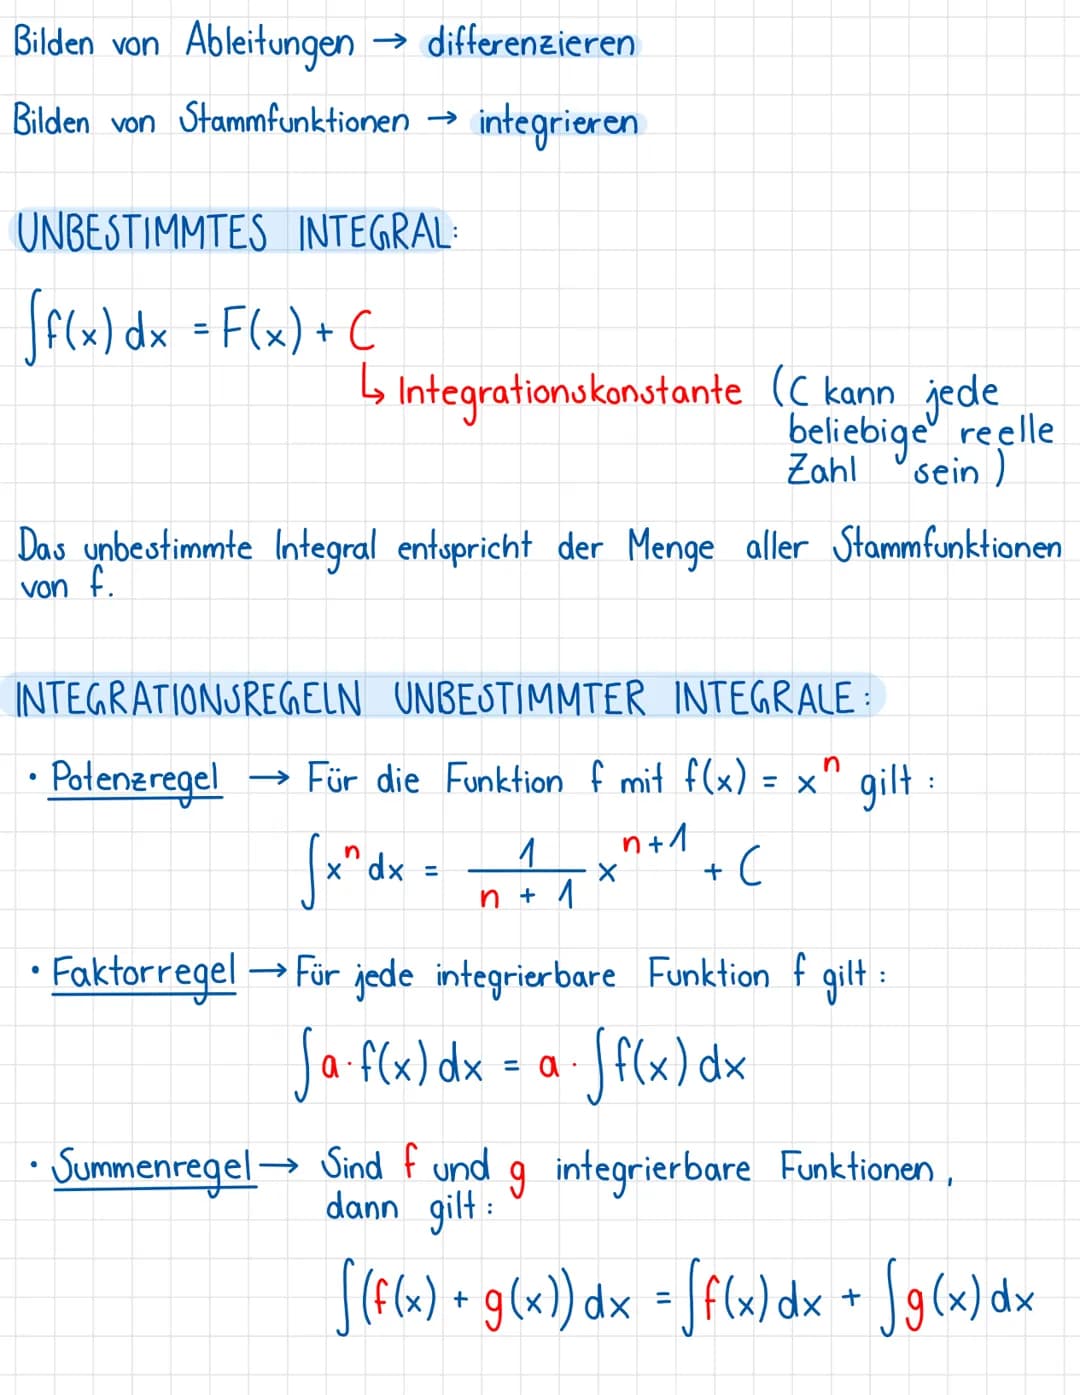 Bilden von Ableitungen → differenzieren
Bilden von Stammfunktionen → integrieren
UNBESTIMMTES INTEGRAL:
∫f(x) dx = F(x) + C
↳ Integrationskonstante (C kann jede
beliebige reelle
Zahl sein)
Das unbestimmte Integral entspricht der Menge aller Stammfunktionen
von f.
INTEGRATIONSREGELN UNBESTIMMTER INTEGRALE:
• Potenzregel → Für die Funktion f mit f(x) = xⁿ gilt:
∫xⁿ dx = 1/(n + 1) x^(n+1) + C
• Faktorregel → Für jede integrierbare Funktion f gilt:
∫a·f(x) dx = a·∫f(x) dx
• Summenregel → Sind f und g integrierbare Funktionen,
dann gilt:
∫(f(x) + g(x)) dx = ∫f(x) dx + ∫g(x) dx